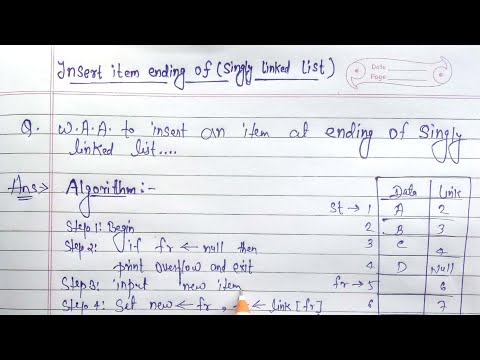 Insert item ending of (Singly linked list)
Date
Page
Q. W.A.A. to insert an item at ending of Singly
linked list....
Ans:→ Algorithm:-
Step 1: Begin
Step 2: if fr ← null then
print overflow and exit
Step 3: input new item
Step 4: Set new ← fr, ← link [fr]
Data Link
St → 1 A 2
2 B 3
3 C 4
4 D Null
fr → 5 6
6 7